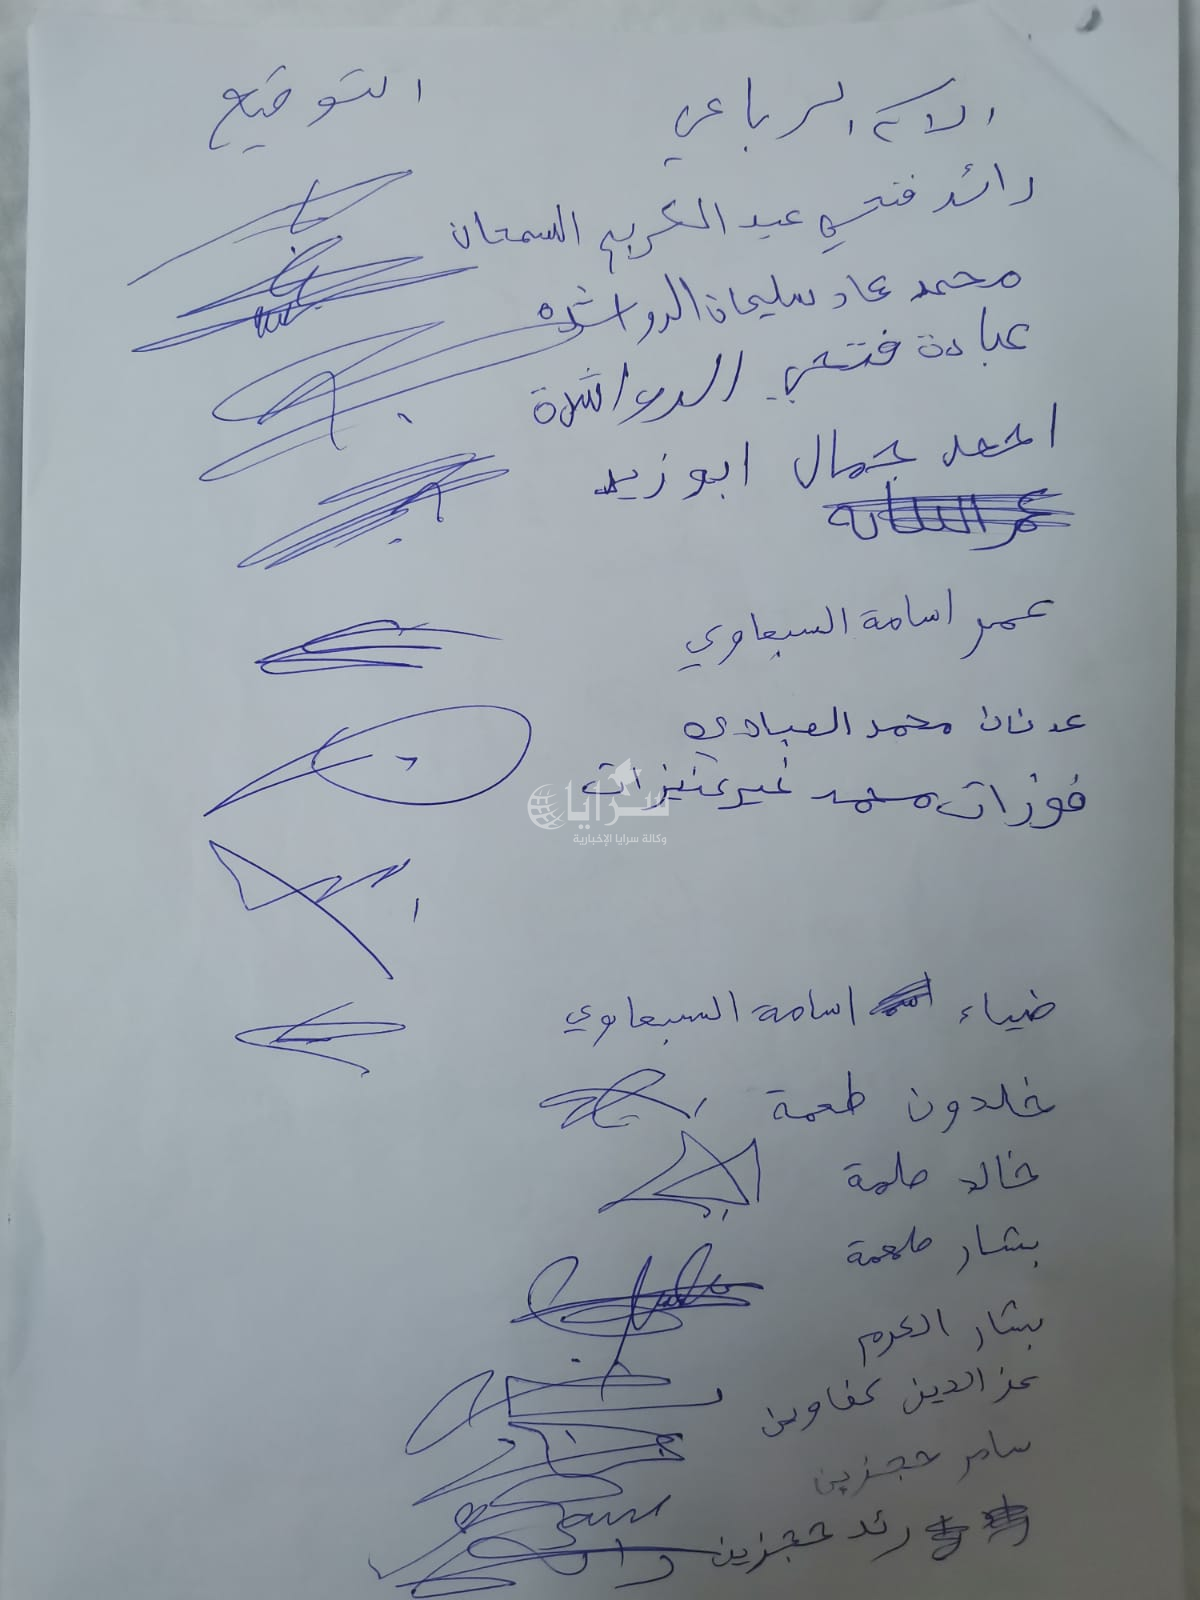 الاسم الرباعي التوقيع
رائد فتحي عبد الكريم السمحان
محمد عماد سليمان الرواشده
عبادة فتحي الرواشدة
احمد جمال ابو زيد
عمر اسامة السبعاوي
عدنان محمد العبادي
فوزات محمد نمير عنيزات
سرايا
وكالة سرايا الإخبارية
ضياء اسامة السبعاوي
خلدون طعمة
خالد طعمة
بشار طعمة
بشار الكرم
عز الدين كفاوين
سامر حجزين
رائد حجزين